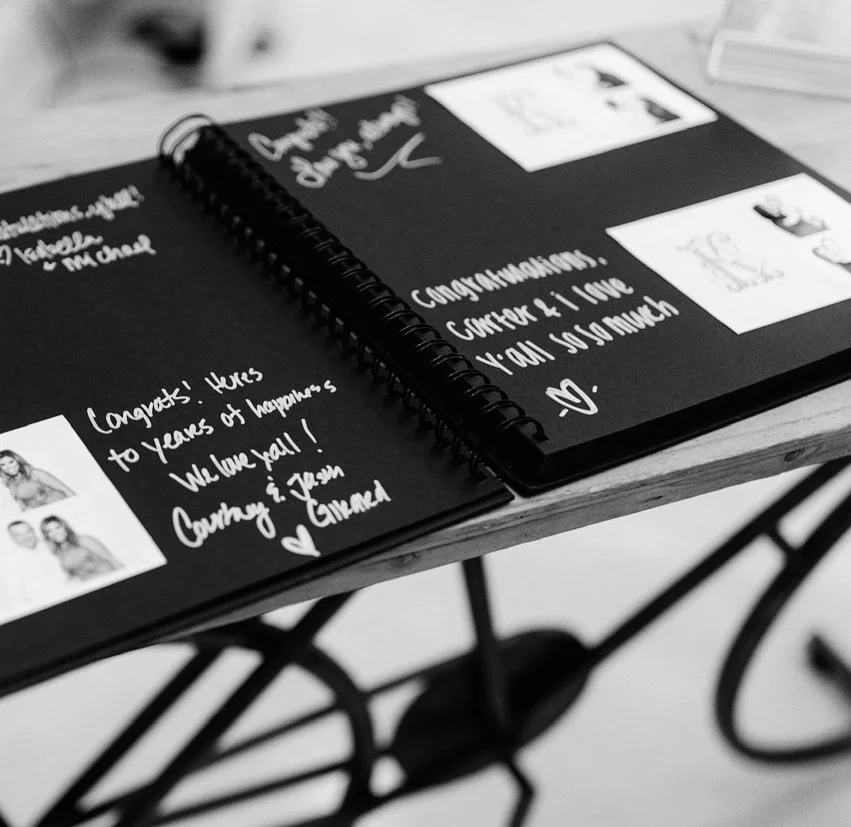 Congratulations, y'all!
♡ Isabella
& Michael
Congrats! Heres
to years of happiness
We love yall!
Courtney & Jason
Gilliard
Congrats!!
love you, always!
Congratulations,
Carter & i love
y'all so so much